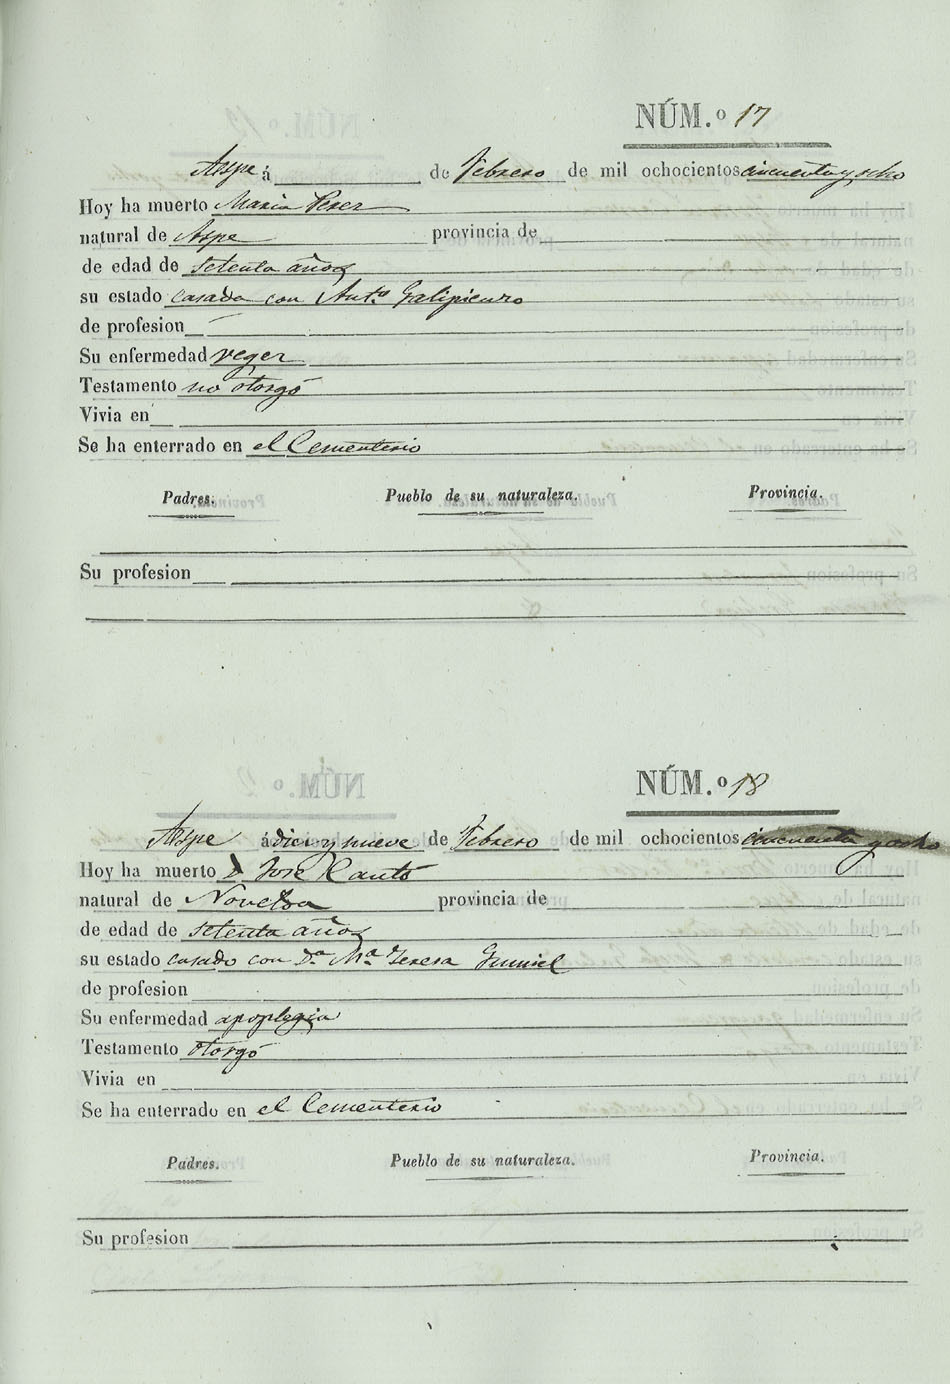 NÚM.º 17
Aspe á de Febrero de mil ochocientos cincuenta y ocho
Hoy ha muerto Maria Perez
natural de Aspe provincia de
de edad de setenta años
su estado casada con Antº Galipienzo
de profesion
Su enfermedad veger
Testamento no otorgó
Vivia en
Se ha enterrado en el Cementerio
Padres. Pueblo de su naturaleza. Provincia.
Su profesion
NÚM.º 18
Aspe á diez y nueve de Febrero de mil ochocientos cincuenta y ocho
Hoy ha muerto D José Cantó
natural de Novelda provincia de
de edad de setenta años
su estado casado con Dª Mª Teresa
de profesion
Su enfermedad apoplegia
Testamento otorgó
Vivia en
Se ha enterrado en el Cementerio
Padres. Pueblo de su naturaleza. Provincia.
Su profesion